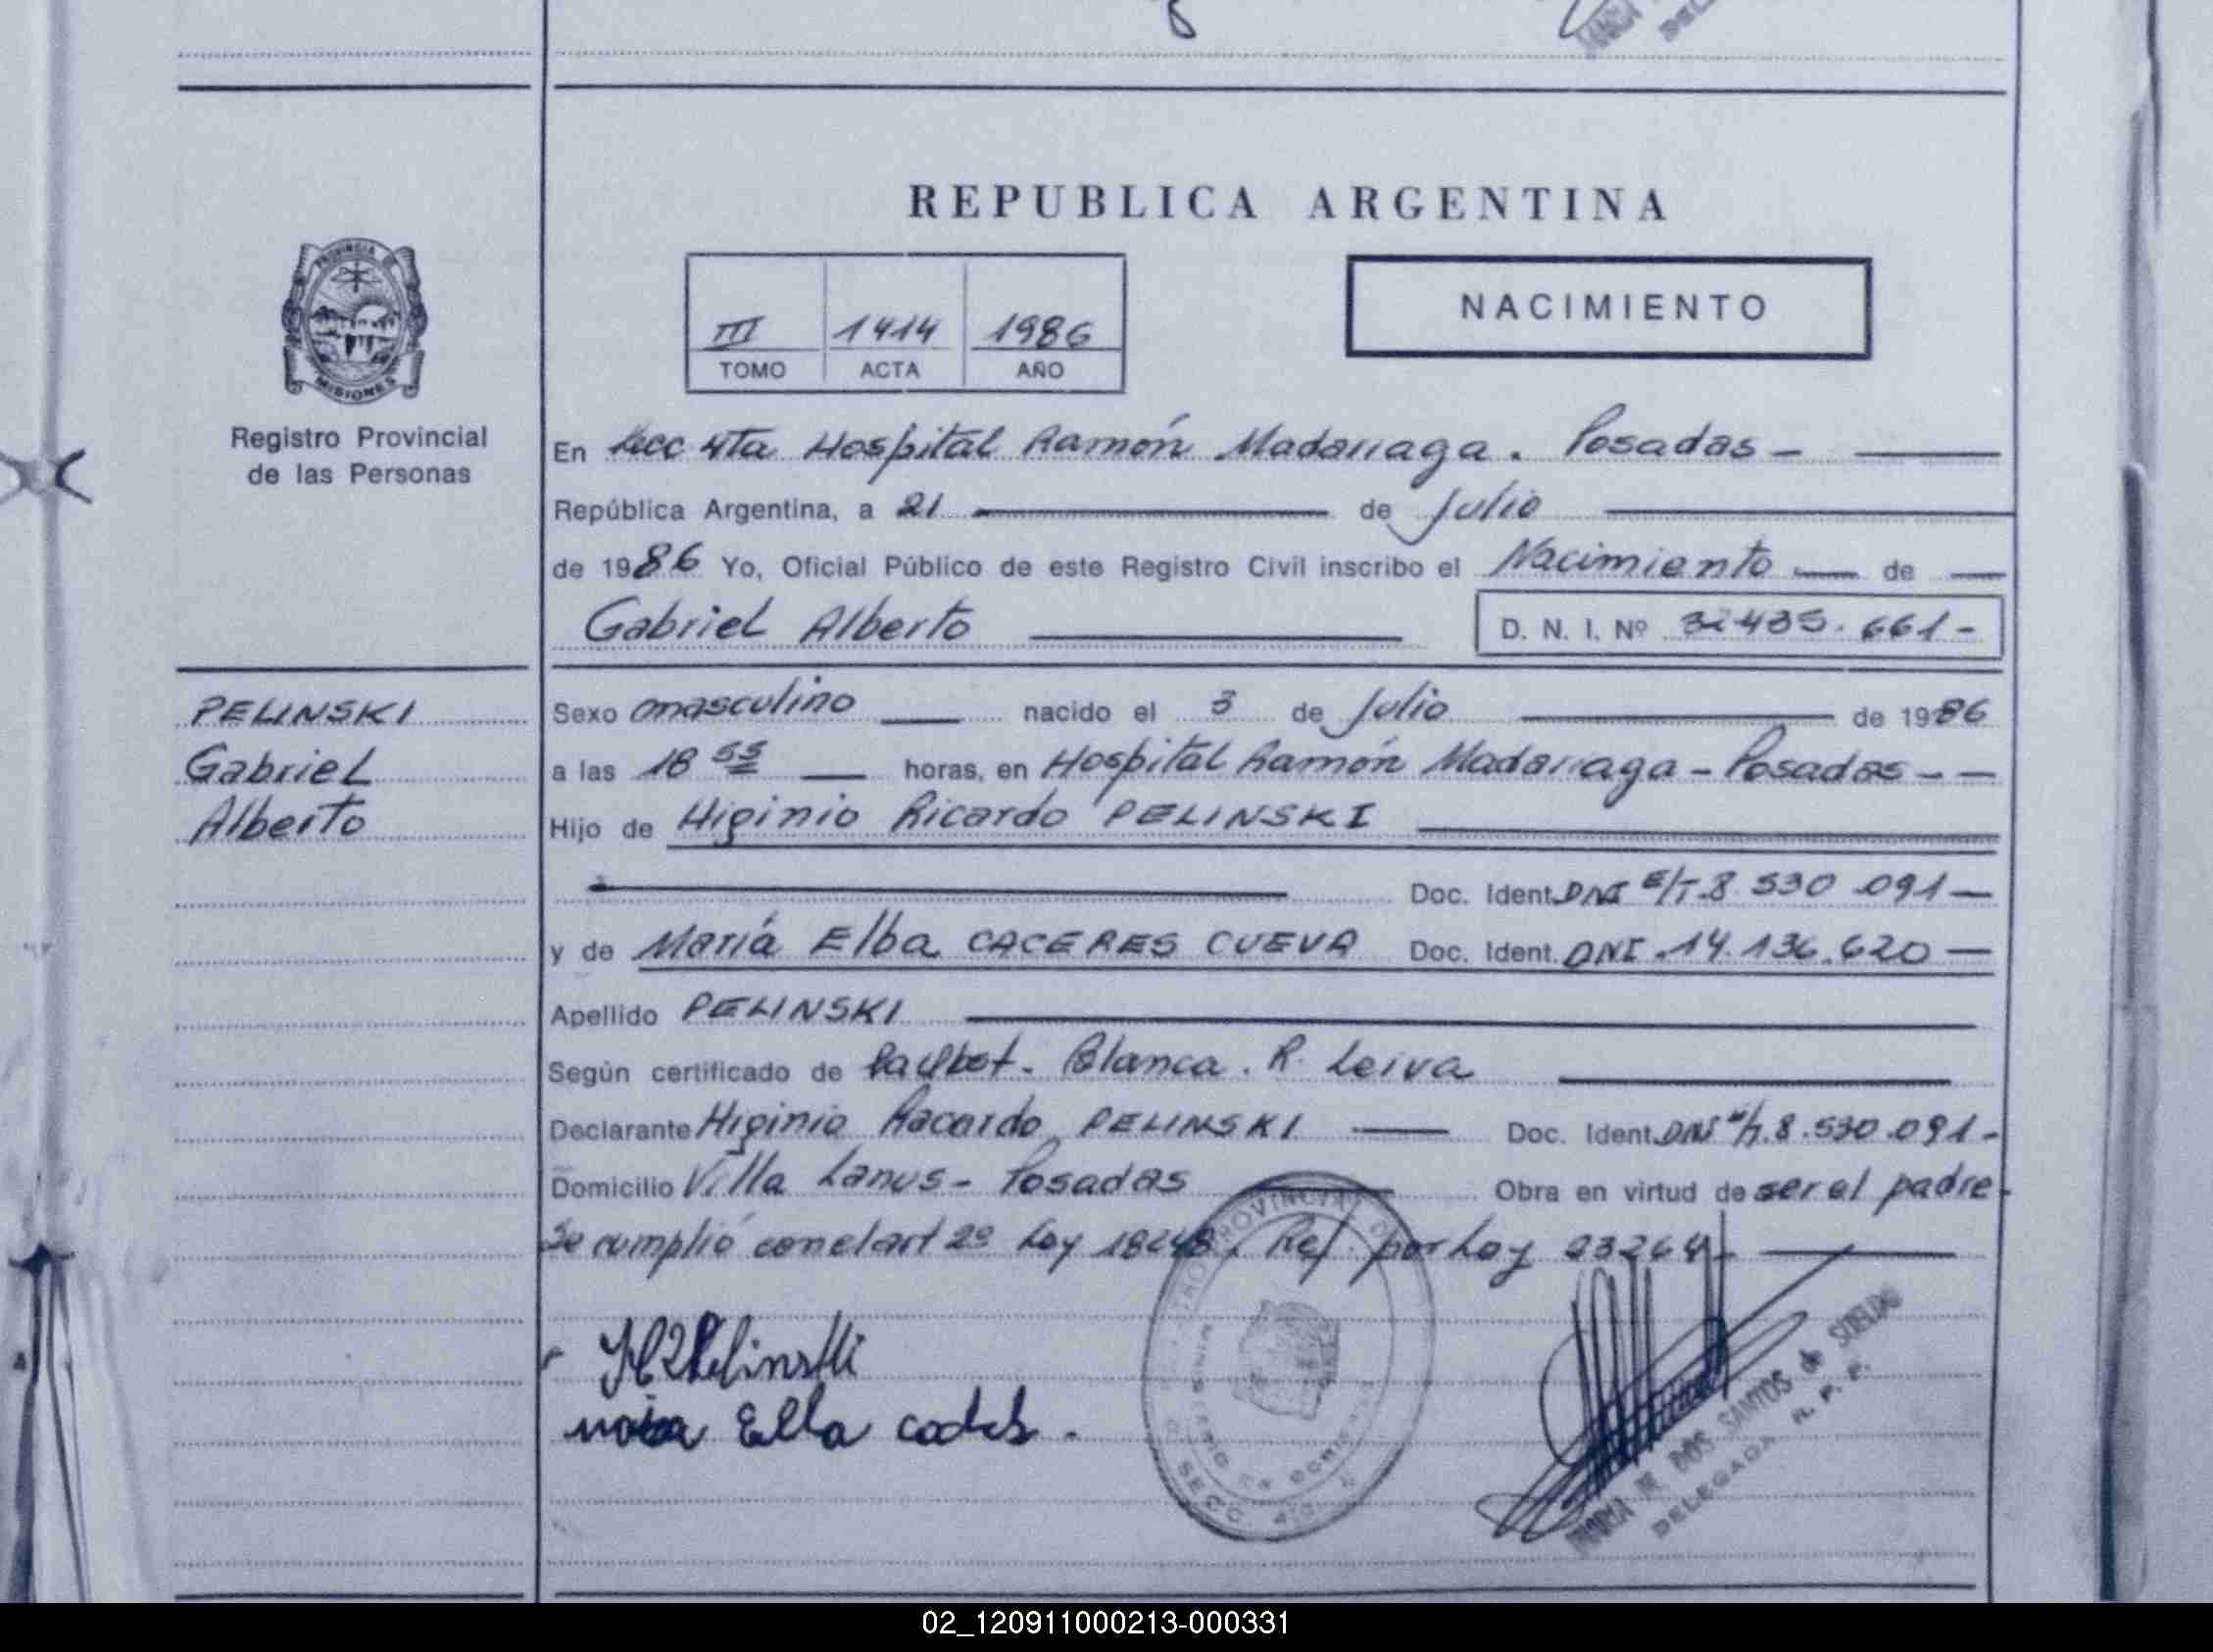 REPUBLICA ARGENTINA
PROVINCIA DE
MISIONES
Registro Provincial
de las Personas
III 1414 1986
TOMO ACTA AÑO
NACIMIENTO
En Secc 4ta Hospital Ramón Madariaga. Posadas -
República Argentina, a 21 de Julio
de 1986 Yo, Oficial Público de este Registro Civil inscribo el Nacimiento de
Gabriel Alberto
D. N. I. Nº 32435.661-
PELINSKI
Gabriel
Alberto
Sexo masculino nacido el 3 de Julio de 1986
a las 18 55 horas, en Hospital Ramón Madariaga - Posadas -
Hijo de Higinio Ricardo PELINSKI
Doc. Ident. DNI E/T. 8 530 091
y de María Elba CACERES CUEVA Doc. Ident. DNI .14.136.620
Apellido PELINSKI
Según certificado de Blanca. R. Leiva
Declarante Higinio Racardo PELINSKI Doc. Ident. DNI 8.530.091-
Domicilio Villa Lanus - Posadas Obra en virtud de ser el padre-
Se cumplió con el art 2º Ley 18248. Ref. por Ley 23264-
Elba
MARIA DOS SANTOS de SUELDO
DELEGADA R. P. P.
SECC. 4
02_120911000213-000331